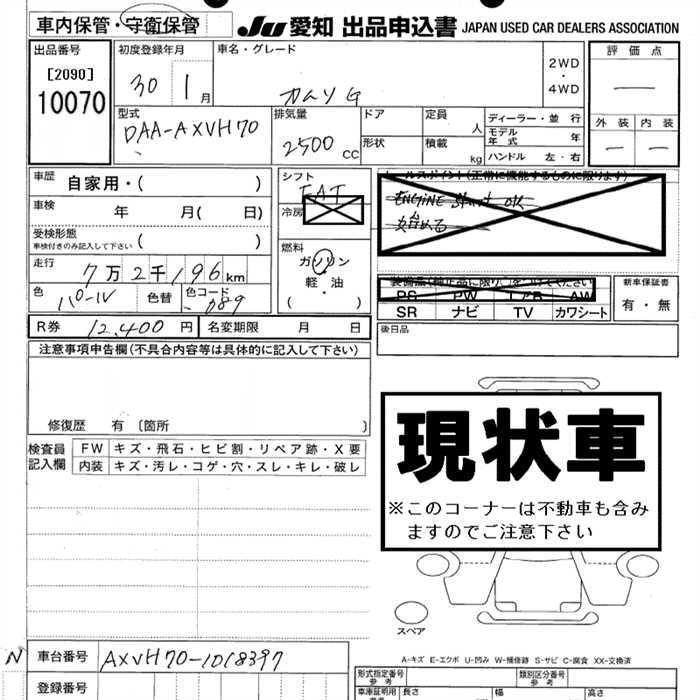 車内保管・守衛保管
JU 愛知 出品申込書 JAPAN USED CAR DEALERS ASSOCIATION
出品番号
[2090]
10070
初度登録年月
30 1月
車名・グレード
カムリG
2WD
・
4WD
評価点
外装 内装
型式
DAA-AXVH70
排気量
2500cc
ドア
形状
定員 人
積載 kg
ディーラー・並行
モデル年式 年
ハンドル 左・右
車歴 自家用・( )
車検 年 月( 日)
受検形態
車検付きのみ記入して下さい ( )
走行 7万2千196km
色 パール 色替 色コード 089
シフト
FAT
冷房
燃料
ガソリン
・
軽・油
( )
セールスポイント(正常に機能するものに限ります)
ENGINE Start OK
装備品(純正品に限り)を○してください
PS PW エアB AW
SR ナビ TV カワシート
新車保証書
有・無
R券 12,400円 名変期限 月 日
後日品
注意事項申告欄(不具合内容等は具体的に記入して下さい)
修復歴 有 〔箇所 〕
検査員記入欄
FW キズ・飛石・ヒビ割・リペア跡・X要
内装 キズ・汚レ・コゲ・穴・スレ・キレ・破レ
現状車
※このコーナーは不動車も含み
ますのでご注意下さい
スペア
A-キズ E-エクボ U-凹み W-補修跡 S-サビ C-腐食 XX-交換済
N 車台番号 AXVH70-1018397
登録番号
形式指定番号
参考
類別区分番号
参考
車庫証明用
長さ 幅 高さ